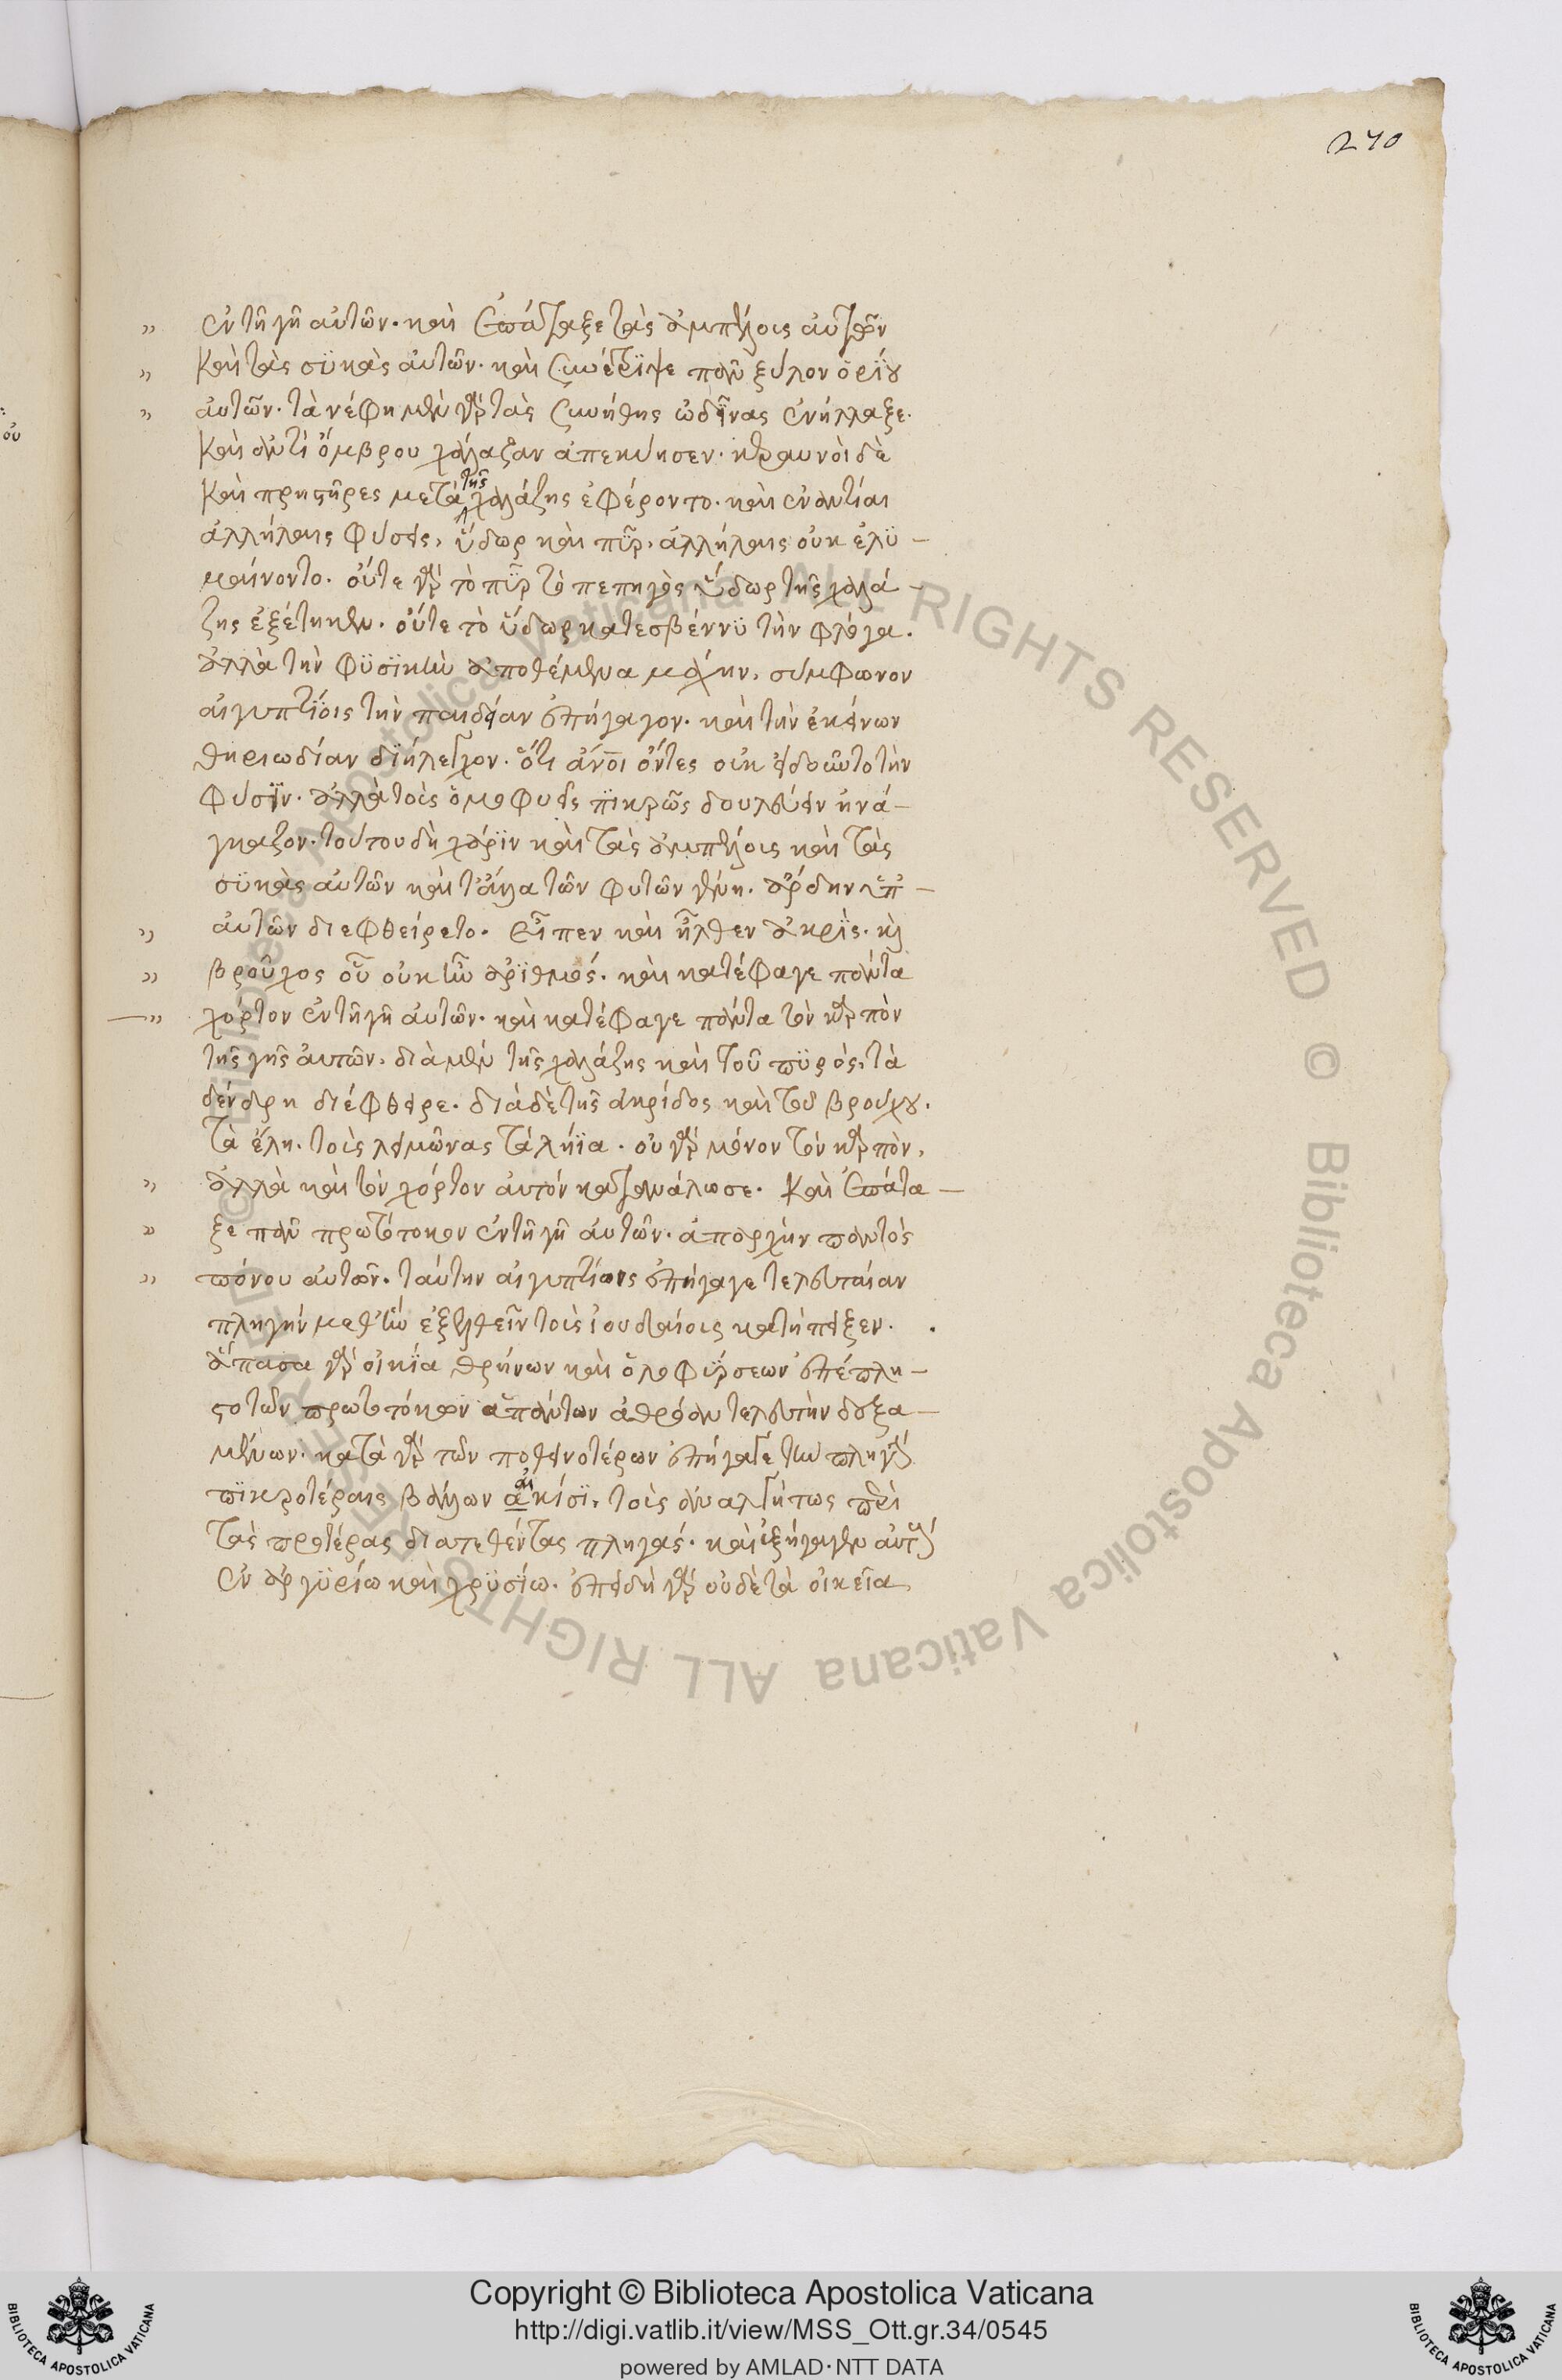 270
ἐν τῆ γῆ αὐτῶν. καὶ ἐπάταξε τὰς ἀμπέλους αὐτῶν
καὶ τὰς σϋκὰς αὐτῶν. καὶ συνέτρϊψε πᾶν ξύλον ὁρίου
αὐτῶν. τὰ νέφη μὲν γὰρ τὰς συνήθης ὠδῖνας ἐνήλλαξε.
καὶ ἀντὶ ὄμβρου χάλαζαν ἀπεκύησεν. κεραυνοὶ δὲ
καὶ πρηστῆρες μετὰ τῆς χαλάζης ἐφέροντο. καὶ ἐναντίαι
ἀλλήλαις φύσεις, ὕδωρ καὶ πῦρ, ἀλλήλαις οὐκ ἐλϋ–
μαίνοντο. οὔτε γὰρ τὸ πῦρ τὸ πεπηγὸς ὕδωρ τῆς χαλά–
ζης ἐξέτηκεν. οὔτε τὸ ὕδωρ κατεσβέννϋ τὴν φλόγα.
ἀλλὰ τὴν φϋσϊκὴν ἀποθέμενα μάχην, σύμφωνον
αἰγυπτίοις τὴν παιδείαν ἐπήγαγον. καὶ τὴν ἐκείνων
θηριωδίαν διήλεγχον. ὅτι ἄνοι ὄντες οὐκ ἠδοῦντο τὴν
φύσϊν. ἀλλὰ τοὺς ὁμοφυεῖς πϊκρῶς δουλεύειν ἠνά–
γκαζον. τούτου δὴ χάρϊν καὶ τὰς ἀμπέλους καὶ τὰς
σϋκὰς αὐτῶν καὶ τἄλλα τῶν φυτῶν γένη. ἄρδην ἅπ–
αὐτῶν διεφθείρετο. εἶπεν καὶ ἦλθεν ἀκρϊς. κὶ
βροῦχος οὗ οὐκ ἦν ἀρϊθμός. καὶ κατέφαγε πάντα
χόρτον ἐν τῆ γῆ αὐτῶν. καὶ κατέφαγε πάντα τὸν καρπὸν
τῆς γῆς αὐτῶν. διὰ μὲν τῆς χαλάζης καὶ τοῦ πϋρὸς, τὰ
δένδρη διέφθειρε. διὰ δὲ τῆς ἀκρίδος καὶ τοῦ βρούχου.
τὰ ἕλη. τοὺς λειμῶνας τὰ λήϊα. οὐ γὰρ μόνον τὸν καρπὸν,
ἀλλὰ καὶ τὸν χόρτον αὐτόν κατανάλωσε. καὶ ἐπάτα–
ξε πᾶν πρωτότοκον ἐν τῆ γῆ αὐτῶν. ἀπαρχὴν παντὸς
πόνου αὐτῶν. ταύτην αἰγυπτίοις ἐπήγαγε τελευταίαν
πληγήν μεθ' ἣν ἐξελθεῖν τοὺς ἰουδαίους κατήπειξεν.
ἅπασα γὰρ οἰκϊα θρήνων καὶ ὀλοφϋρσεων ἐπέπλη–
στο τῶν πρωτοτόκων ἁπάντων ἀθρόαν τελευτὴν δεξα–
μένων. κατὰ γὰρ τῶν ποθεινοτέρων ἐπήγαγε τὴν πληγὴν
πϊκροτέραις βάλλων ἀκίσϊ, τοὺς ἀναλγήτως περὶ
τὰς προτέρας διατεθέντας πληγάς. καὶ ἐξήγαγεν αὐτοὺς
ἐν ἀργϋρίω καὶ χρϋσίω. ἐπειδὴ γὰρ οὐδὲ τὰ οἰκεῖα
Copyright © Biblioteca Apostolica Vaticana
http://digi.vatlib.it/view/MSS_Ott.gr.34/0545
powered by AMLAD·NTT DATA